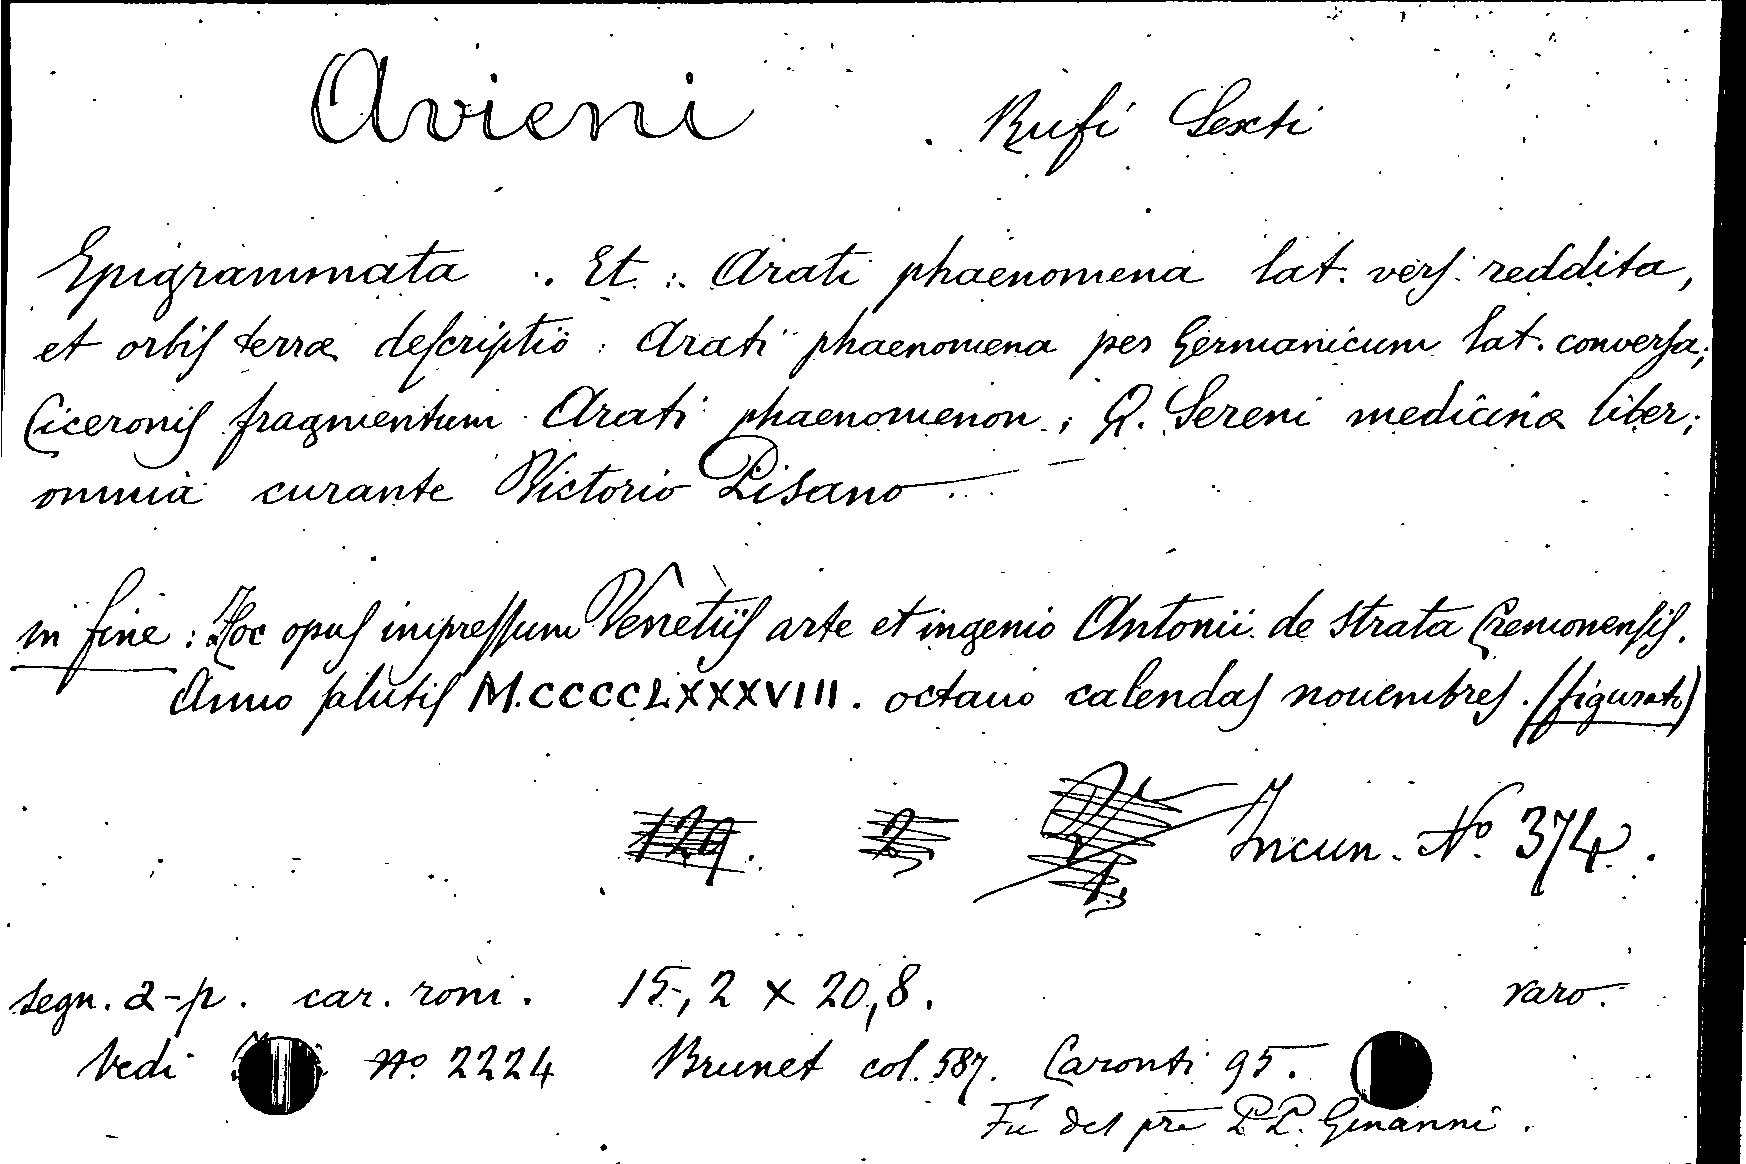 Avieni Rufi Sexti
Epigrammata. Et: Arati phaenomena lat. verſ. reddita,
et orbiſ terræ deſcriptio: Arati phaenomena per Germanicum lat. converſa;
Ciceroniſ fragmentum Arati phaenomenon; Q. Sereni medicinæ liber;
omnia curante Victorio Pisano
in fine: Hoc opuſ impreſſum Venetiiſ arte et ingenio Antonii de Strata Cremonenſiſ.
Anno ſalutiſ M.CCCCLXXXVIII. octauo calendaſ nouembreſ. (figurato)
129. 2 Incun. No. 374.
segn. a-p. car. rom. 15,2 x 20,8. raro.
Vedi No. 2224 Brunet col. 587. Caronti 95.
Fu del pre P.P. Ginanni.